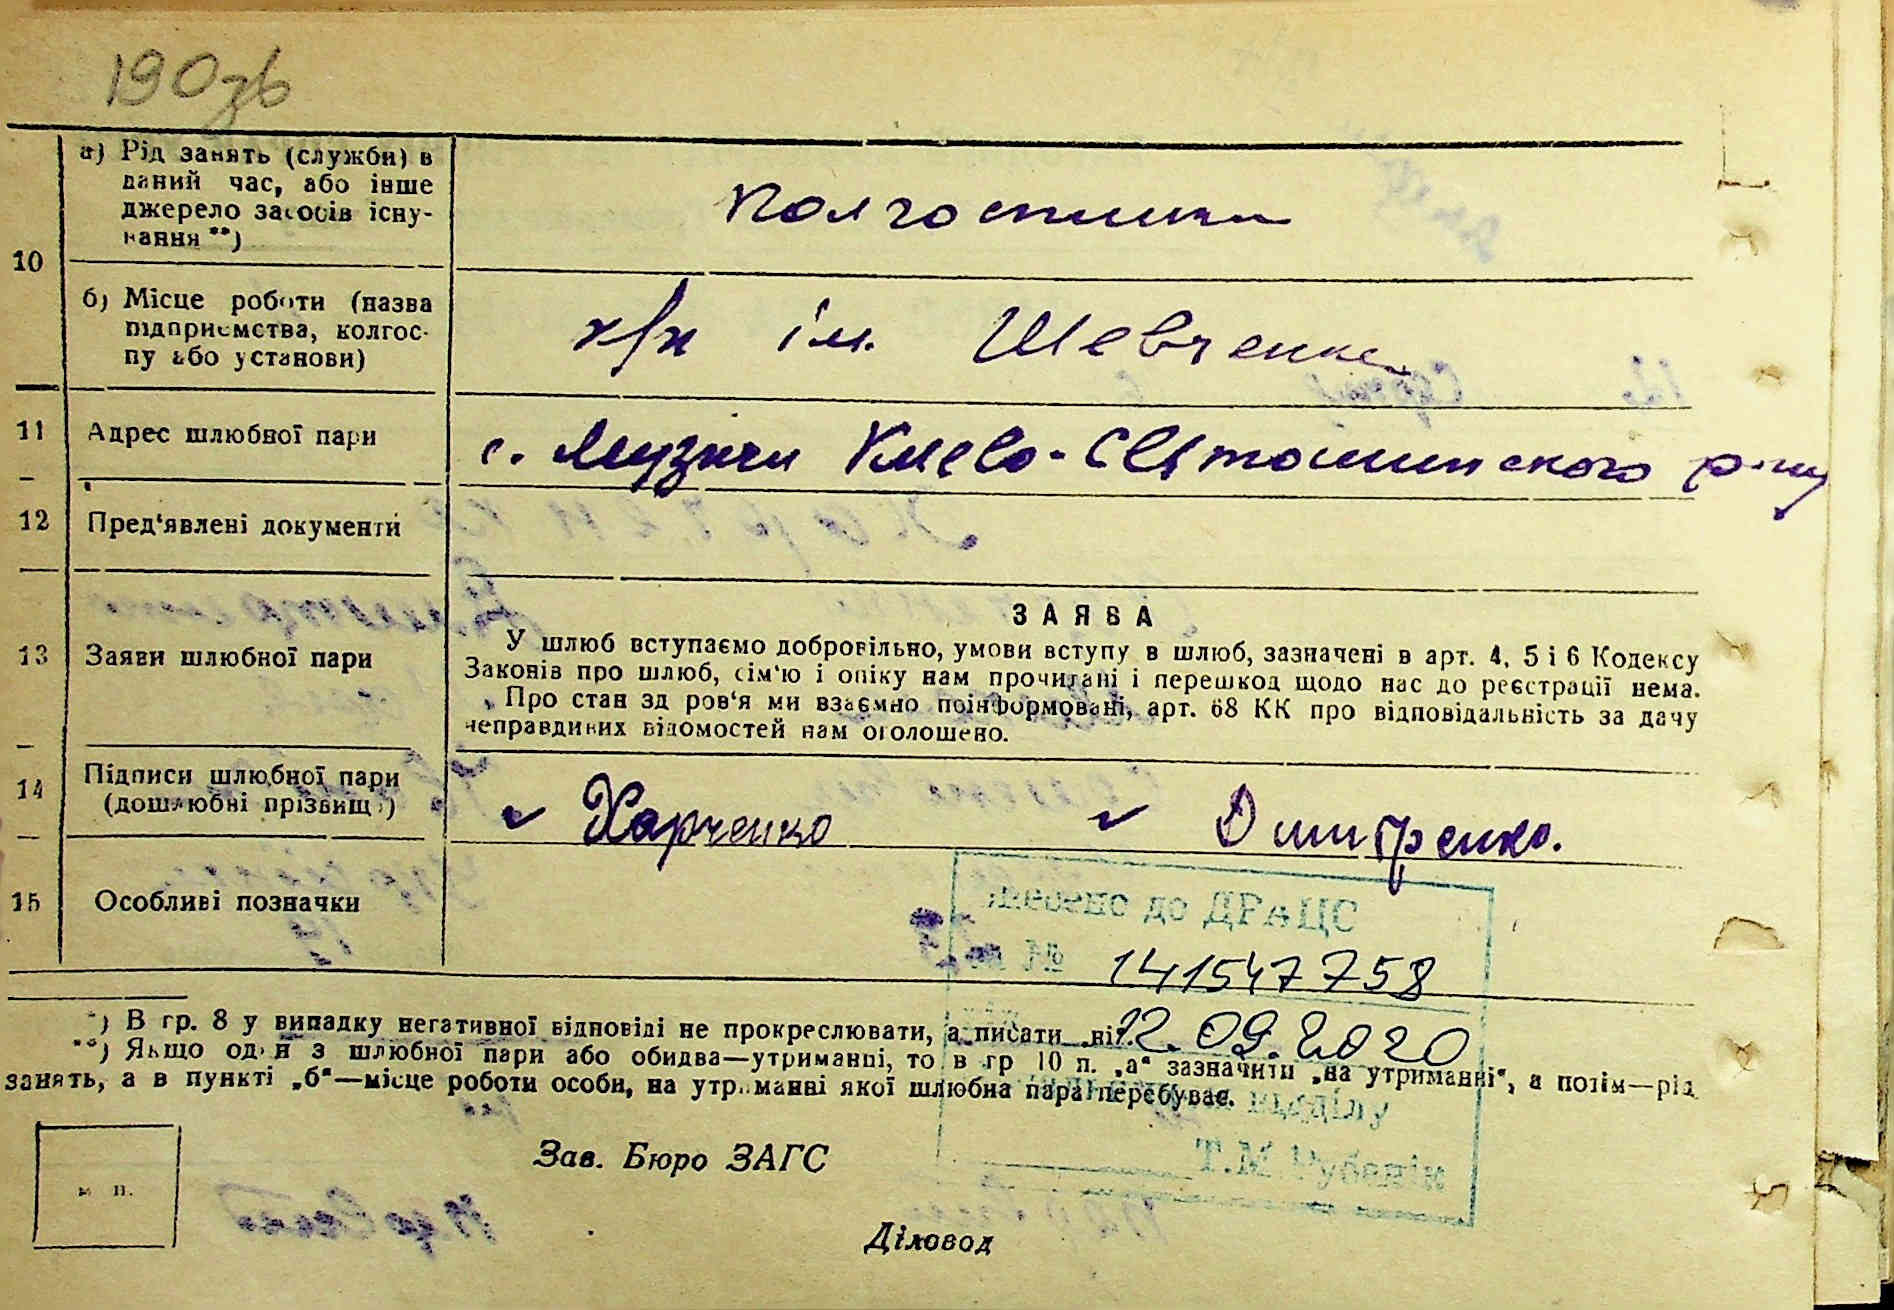 190зв
а) Рід занять (служби) в
даний час, або інше
джерело засобів існу-
вання **)
Колгоспники
10
б) Місце роботи (назва
підприємства, колгос-
пу або установи)
к/г ім. Шевченка
11 Адрес шлюбної пари
с. Музичи Києво-Святошинського р-ну
12 Пред'явлені документи
13 Заяви шлюбної пари
ЗАЯВА
У шлюб вступаємо добровільно, умови вступу в шлюб, зазначені в арт. 4, 5 і 6 Кодексу
Законів про шлюб, сім'ю і опіку нам прочитані і перешкод щодо нас до реєстрації нема.
Про стан здоров'я ми взаємно поінформовані, арт. 68 КК про відповідальність за дачу
неправдивих відомостей нам оголошено.
14 Підписи шлюбної пари
(дошлюбні прізвища)
Харченко Дмитренко.
15 Особливі позначки
до ДРАЦС
за № 141547758
12.09.2020
відділу
Т.М.
*) В гр. 8 у випадку негативної відповіді не прокреслювати, а писати „ні“.
**) Якщо один з шлюбної пари або обидва—утриманці, то в гр 10 п. „а“ зазначити „на утриманні“, а потім—рід
занять, а в пункті „б“—місце роботи особи, на утриманні якої шлюбна пара перебуває.
м п.
Зав. Бюро ЗАГС
Діловод